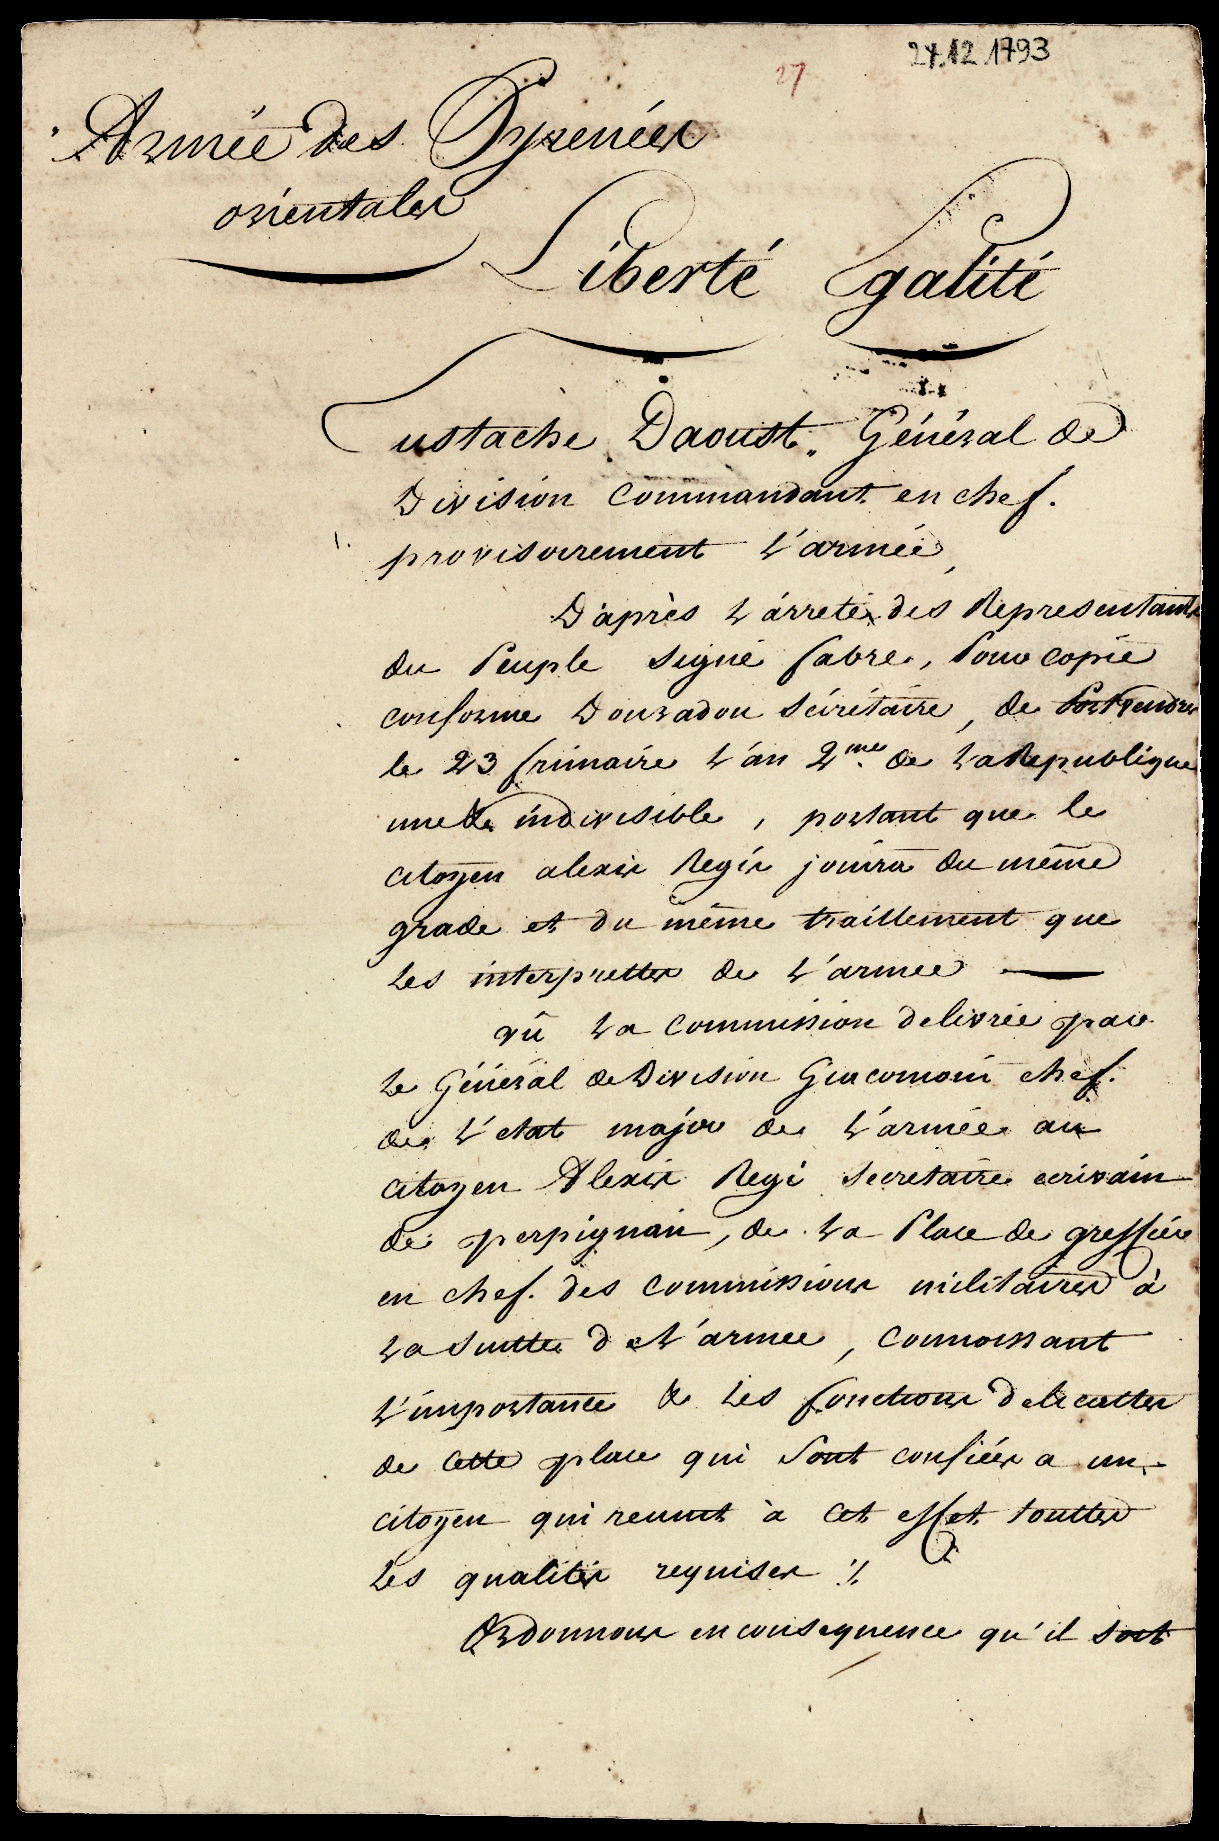 27.12.1793
27
Armée des Pyrenées
orientales
Liberté Egalité
Eustache Daoust, Général de
Division Commandant en chef.
provisoirement L'armée,
D'après L'arreté des Representants
du Peuple signé fabre, Pour copie
conforme Douradou Sécrétaire, de Portvendres
le 23 frimaire L'an 2me. de La Republique
une & indivisible, portant que le
citoyen alexis Regis jouira du même
grade et du même traittement que
Les interprettes de L'armee
vû La Commission delivrée par
Le Général de Division Giacomoni chef.
de L'etat major de L'armée au
citoyen Alexis Regi Secretaire ecrivain
de perpignan, de La Place de greffier
en chef. des Commissions militaires à
La Suitte de L'armee, Connoissant
L'importance & Les fonctions delicattes
de Cette place qui Sont confiées a un
citoyen qui reunit à Cet effet touttes
Les qualités requises ·/.
Ordonnons en consequence qu'il soit